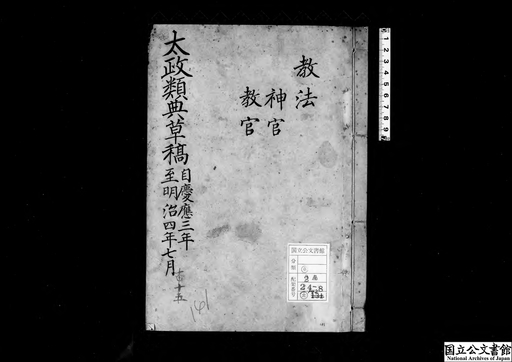 教法
神官
教官
太政類典草稿
自慶應三年
至明治四年七月
百十五
141
国立公文書館
分類
配架番号
2A
24-8
国立公文書館
National Archives of Japan
1 2 3 4 5 6 7 8 9